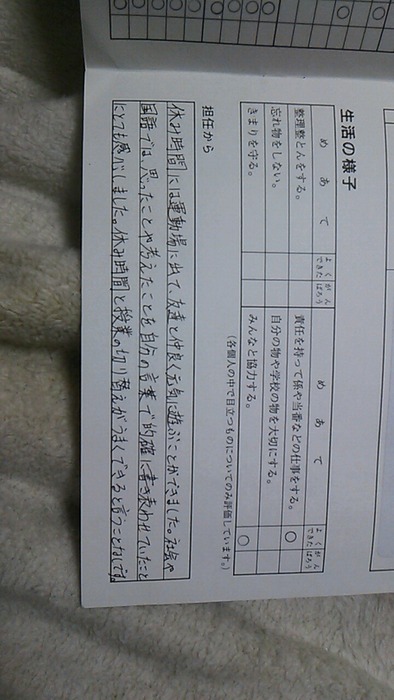 生活の様子
めあて よくできた がんばろう めあて よくできた がんばろう
整理整とんをする。 責任を持って係や当番などの仕事をする。 ○
忘れ物をしない。 自分の物や学校の物を大切にする。
きまりを守る。 みんなと協力する。 ○
(各個人の中で目立つものについてのみ評価しています。)
担任から
休み時間には運動場に出て、友達と仲良く元気に遊ぶことができました。社会や
国語では、思ったことや考えたことを自分の言葉で的確に書き表わせていたこと
にとても感心しました。休み時間と授業の切り替えがうまくできると言うことなしです。